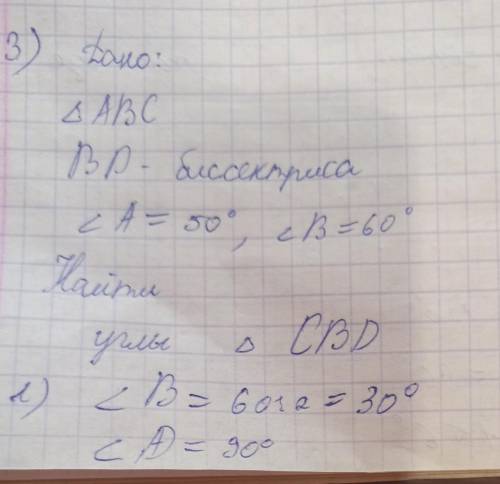 3) Дано:
△ ABC
BD - биссектриса
∠A = 50°, ∠B = 60°
Найти
углы △ CBD
∠B = 60:2 = 30°
∠D = 90°